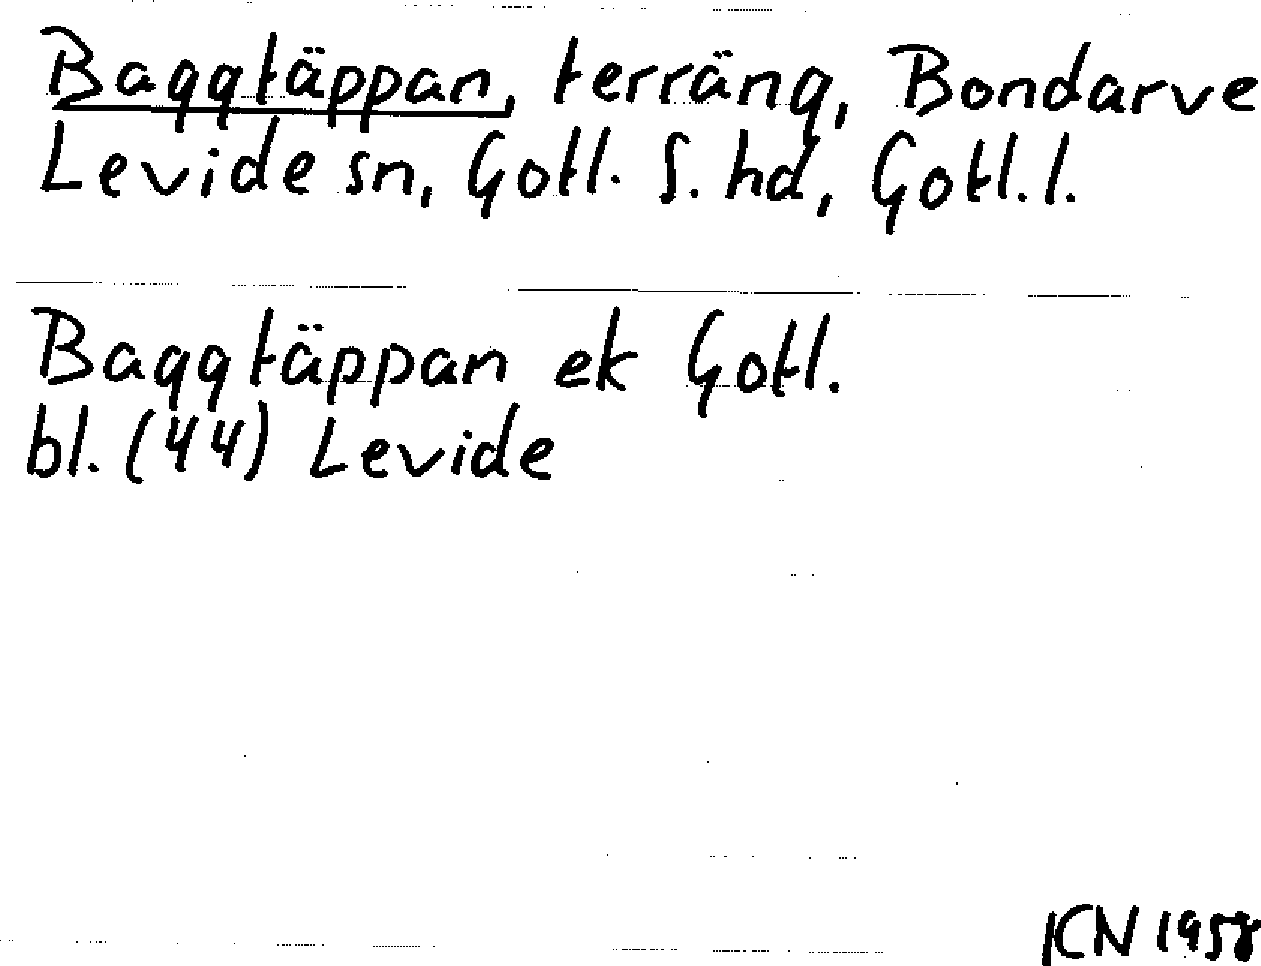 Baggtäppan, terräng, Bondarve
Levide sn, Gotl. S. hd, Gotl. l.
Baggtäppan ek Gotl.
bl. (44) Levide
KN 1958